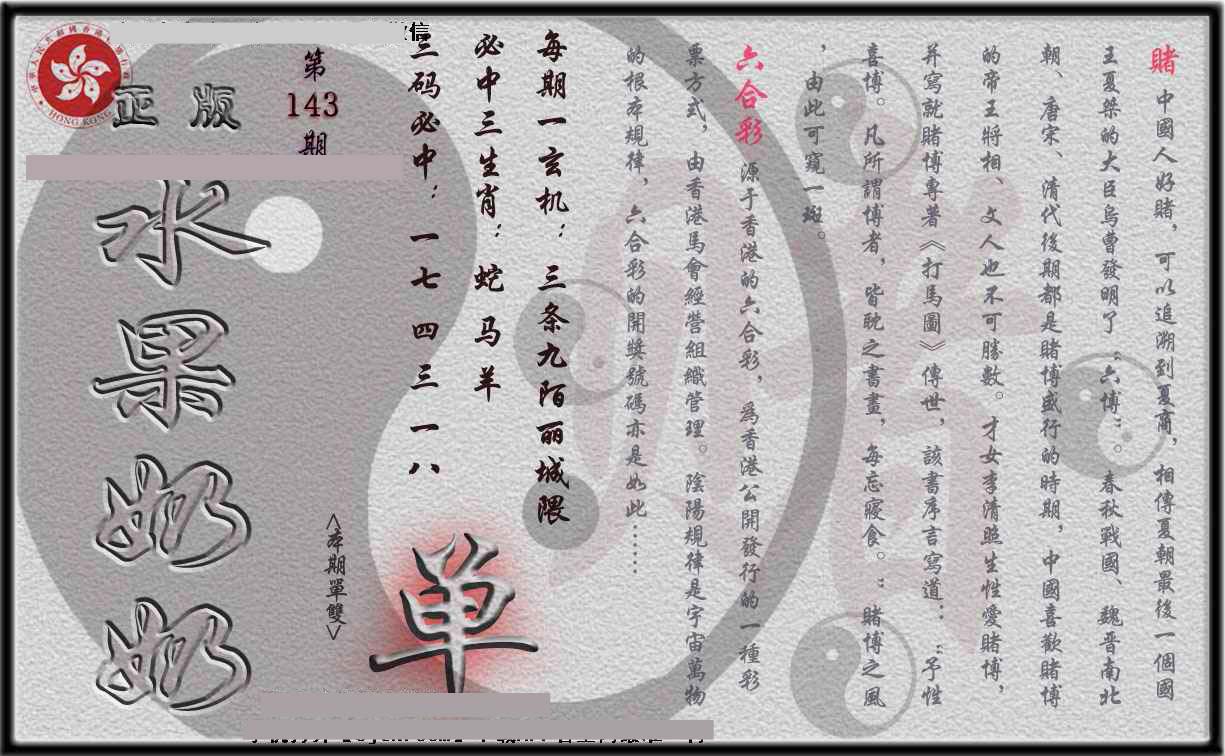 賭 中國人好賭，可以追溯到夏商，相傳夏朝最後一個國
王夏桀的大臣烏曹發明了“六博”。春秋戰國、魏晋南北
朝、唐宋、清代後期都是賭博盛行的時期，中國喜歡賭博
的帝王將相、文人也不可勝數。才女李清照生性愛賭博，
并寫就賭博專著《打馬圖》傳世，該書序言寫道：：“予性
喜博。凡所謂博者，皆耽之書畫，每忘寢食。”：賭博之風
，由此可窺一斑。
六合彩 源于香港的六合彩，爲香港公開發行的一種彩
票方式，由香港馬會經營組織管理。陰陽規律是宇宙萬物
的根本規律，六合彩的開獎號碼亦是如此……
每期一玄机：三条九陌丽城隈
必中三生肖：蛇马羊
三码必中：一七四三一八
單
<本期單雙>
第
143
期
正版
水果奶奶
HONG KONG